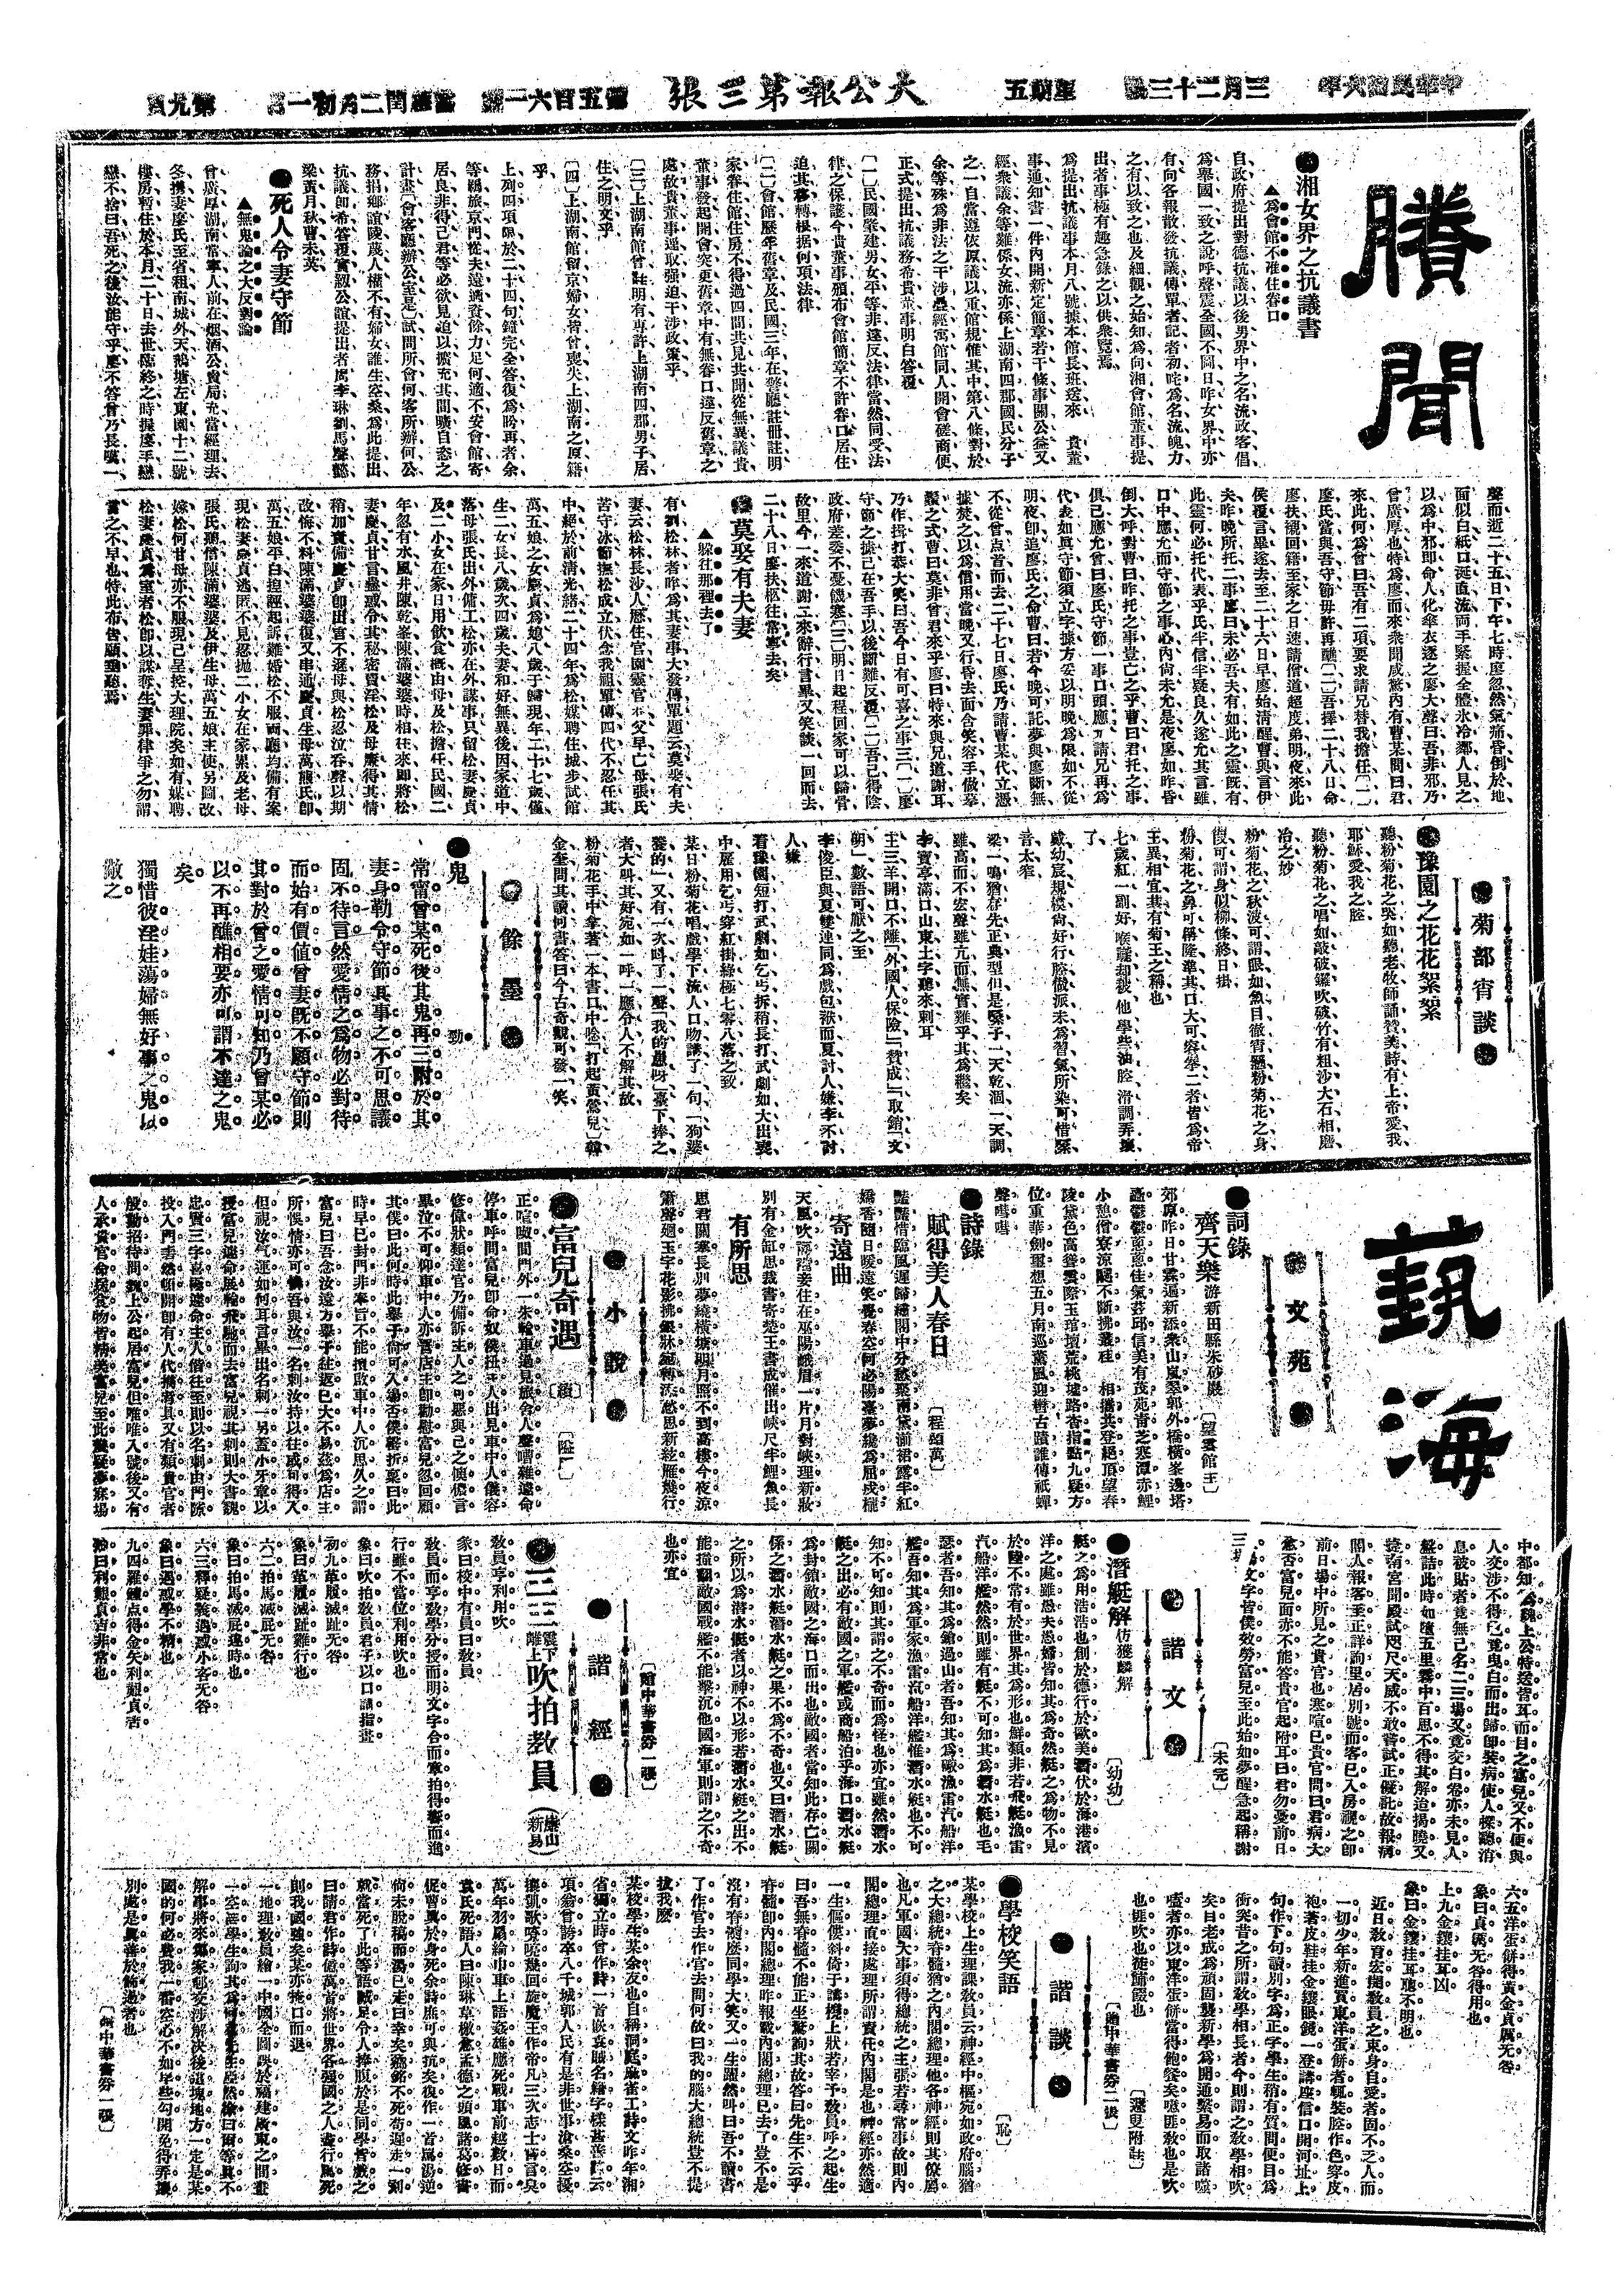 中華民國六年
三月二十三號
星期五
大公報第三張
第五百六一號
舊曆閏二月初一日
第九頁
賸聞
●湘女界之抗議書
▲爲會館不准住眷口
自政府提出對德抗議以後男界中之名流政客倡
爲舉國一致之說呼聲震全國不圖日昨女界中亦
有向各報散發抗議傳單者記者初咤爲名流魄力
之有以致之也及細觀之始知爲向湘會館董事提
出者事極有趣急錄之以供衆覽焉
爲提出抗議事本月八號據本館長班送來　貴董
事通知書一件內開新定簡章若干條事關公益又
經衆議余等雖係女流亦係上湖南四郡國民分子
之一自當遵依原議以重館規惟其中第八條對於
余等殊爲非法之干涉疊經寓館同人開會磋商便
正式提出抗議務希貴董事明白答覆
〔一〕民國肇建男女平等非違反法律當然同受法
律之保護今貴董事頒布會館簡章不許眷口居住
迫其移轉根据何項法律
〔二〕會館歷年舊章及民國三年在警廳註冊註明
家眷住館住房不得過四間共見共聞從無異議貴
董事發起開會突更舊章中有無眷口違反舊章之
處故貴董事遽取强迫干涉政策乎
〔三〕上湖南館曾註明有專許上湖南四郡男子居
住之明文乎
〔四〕上湖南館留京婦女皆曾喪失上湖南之原籍
乎
上列四項限於二十四句鐘完全答復爲盼再者余
等羈旅京門從夫遠適資餘力足何適不安會館寄
居良非得已君等必欲見迫以擴充其間曠自恣之
計畫（會客廳辦公室是）試問所會何客所辦何公
務捐鄉誼陵蔑人權不有婦女誰生空桑爲此提出
抗議卽希答覆實紉公誼提出者周李琳劉馬聲懿
梁黃月秋曹未英
●死人令妻守節
▲無鬼論之大反對論
曾廣厚湖南常寧人前在烟酒公賣局充當經理去
冬携妻廖氏至省租南城外天鵝塘左東園十二號
樓房暫住於本月二十日去世臨終之時握廖手戀
戀不捨曰吾死之後汝能守乎廖不答曾乃長嘆一
聲而近二十五日下午七時廖忽然氣痛昏倒於地
面似白紙口涎直流兩手緊握全體氷冷鄰人見之
以爲中邪卽命人化傘衣逐之廖大聲曰吾非邪乃
曾廣厚也特爲廖而來衆聞咸驚內有曹某問曰君
來此何爲曾曰吾有二項要求請兄替我擔任〔一〕
廖氏當與吾守節毋許再醮〔二〕吾擇二十八日命
廖扶櫬回籍至家之日速請僧道超度弟明夜來此
候覆言畢遂去至二十六日早廖始淸醒曹與言伊
夫昨晚所托二事廖曰未必吾夫有如此之靈既有
此靈何必托代表乎氏半信半疑良久遂允其言雖
口中應允而守節之事心內尙未允是夜廖如昨昏
倒大呼對曹曰昨托之事豈亡之乎曹曰君托之事
俱已應允曾曰廖氏守節一事口頭應了請兄再爲
代表如眞守節須立字據方妥以明晚爲限如不從
明夜卽追廖氏之命曹曰若今晚可託夢與廖斷無
不從曾点首而去二十七日廖氏乃請曹某代立憑
據焚之以爲信用當晚又行昏去面含笑容手做摹
鬚之式曹曰莫非曾君來乎廖曰特來與兄道謝耳
乃作揖打恭大笑曰吾今日有可喜之事三〔一〕廖
守節之據已在吾手以後斷難反覆〔二〕吾已得陰
政府差委不憂饑寒〔三〕明日起程回家可以歸骨
故里今一來道謝二來辭行言畢又笑談一回而去
二十八日廖扶柩往常寧去矣
●莫娶有夫妻
▲躱往那裡去了
有劉松林者昨爲其妻事大發傳單題云莫娶有夫
妻云松林長沙人歷住官園靈官衖父早亡母張氏
苦守冰節撫松成立伏念我祖單傳四代不忍任其
中經於前淸光緖二十四年爲松媒聘住城步試館
萬五娘之女慶貞爲媳八歲于歸現年二十七歲僅
生二女長八歲次四歲夫妻和好無異後因家道中
落母張氏出外傭工松亦在外謀事只留松妻慶貞
及二小女在家日用飲食槪由母及松擔任民國二
年忽有水風井陳乾峯陳滿婆婆時相任來卽將松
妻慶貞甘言蠱惑令其秘密賣淫松及母廉得其情
稍加責備慶貞卽出害不遜母與松忍泣呑聲以期
改悔不料陳滿婆婆復又串通慶貞生母萬熊氏卽
萬五娘平白捏經起訴離婚松不服両廳均備有案
現松妻慶貞逃匿不見忍抛二小女在家累及老母
張氏聽僧陳滿婆婆及伊生母萬五娘主使另圖改
嫁松何甘母亦不服現已呈控大理院矣如有媒聘
松妻慶貞爲室者松卽以謀奪生妻罪律爭之勿謂
言之不早也特此布告願垂聽焉
●菊部宵談●
●豫園之花花絮絮
聽粉菊花之哭如聽老牧師誦贊美詩有上帝愛我
耶穌愛我之腔
聽粉菊花之唱如敲破鑼吹破竹有粗沙大石相磨
冶之妙
粉菊花之秋波可謂眼如魚目徹宵懸粉菊花之身
假可謂身似柳條終日掛
粉菊花之鼻可稱隆準其口大可容拳二者皆爲帝
王異相宜其有菊王之稱也
七歲紅一副好喉嚨却被他學些油腔滑調弄壞
了
戴幼宸規模尙好行腔做派未爲習氣所染可惜嗓
音太窄
梁一鳴猶存先正典型但是嗓子一天乾涸一天調
雖高而不宏聲雖亢而無實難乎其爲繼矣
李寶亭滿口山東土字聽來刺耳
王三羊開口不離「外國人保險」「賛成」「取銷」「文
朝」數語可厭之至
李俊臣與夏雙連同爲戲包袱而夏討人嫌李不討
人嫌
看豫園短打武劇如乞丐拆稍長打武劇如大出喪
中雇用乞丐穿紅掛綠極七零八落之致
某日粉菊花唱戲學下流人口吻講了一句「狗婆
養的」又有一次叫了一聲「我的愚呀」臺下捧之
者大呌其好宛如一呼一應令人不解其故
粉菊花手中拿著一本書口中唸「打起黃鶯兒」韓
金奎問其讀何書答曰今古奇觀可發一笑
●餘墨●
●鬼
勁
常甯曾某死後其鬼再三附於其
妻身勒令守節其事之不可思議
固不待言然愛情之爲物必對待
而始有價値曾妻既不顧守節則
其對於曾之愛情可知乃曾某必
以不再醮相要亦可謂不達之鬼
矣
獨惜彼淫娃蕩婦無好事之鬼以
儆之
藝海
●文苑●
●詞錄
齊天樂 游新田縣朱砂巖〔望雲館主〕
郊原昨日甘霖過新添衆山嵐翠郭外橋橫峯邊塔
小憩僧寮涼颸不斷拂叢桂　相攜共登絕頂望春
陵黛色高聳雲際玉琯壇荒桃墟路杳指點九疑方
位重華劍璽想五月南巡薰風迎轡古蹟誰傳祇蟬
聲嘒嘒
●詩錄
賦得美人春日〔程頌萬〕
豔豔惜臨風遲歸繡閣中分愁聚兩黛湔裙露半紅
嬌香隨日暖遠笑覺春空何必陽臺夢纔爲屈戌櫳
寄遠曲
別有金缸思裁書寄楚王書成催出峽尺半鯉魚長
有所思
思君關塞長別夢繞橫塘明月照不到高樓今夜涼
●小說●
●富兒奇遇
正喧呶間門外一朱輪車過見旅舍人聲嘈雜遽命
停車呼問富兒卽命奴僕扭主人出見車中人儀容
修偉狀類達官乃備訴主人之可惡與己之懊儂言
畢泣不可仰車中人亦詈店主卽勸慰富兒忽回顧
其僕曰此何時此舉子倘可入場否僕磬折稟曰此
時早已封門非奉旨不能擅啟車中人沉思久之謂
富兒曰吾念汝遠方舉子往返已大不易茲爲店主
所悞情亦可憐吾與汝一名刺汝持以往或可得入
但視汝气運如何耳言畢出名刺一另蓋小牙章以
授富兒遽命展輪飛馳而去富兒視其刺則大書魏
忠賢三字喜極遽命主人偕往至則以名刺由門隙
投入門砉然頓開卽有人代攜考具又有類貴官者
殷勤招待問魏上公起居富兒但唯唯入號後又有
人承貴官命餽食物皆精美富兒至此幾疑夢寐場
中都知爲魏上公特送皆耳而目之富兒又不便與
人交涉不得已竟曳白而出歸卽裝病使人探聽消
息被貼者竟無己名二三場又竟交白卷亦未見人
盤詰此時如墮五里霧中百思不得其解迨揭曉又
捷南宮聞殿試咫尺天威不敢嘗試正儗託故報病
閽人報客至正詳詢里居別號而客已入房視之卽
前日場中所見之貴官也寒暄已貴官問曰君病大
愈否富兒面赤不能答貴官起附耳曰君勿憂前日
三場文字皆僕效勞富兒至此始如夢醒急起稱謝
〔未完〕
●諧文●
●潛艇解 仿獲麟解〔幼幼〕
艇之爲用浩浩也創於德行於歐美潛伏於海港濱
洋之處雖愚夫愚婦皆知其爲奇然艇之爲物不見
於陸不常有於世界其爲形也鮮類非若飛艇漁雷
汽船洋艦然然則雖有艇不可知其爲潛水艇也毛
瑟者吾知其爲鎗過山者吾知其爲礮漁雷汽船洋
艦吾知其爲軍家漁雷汽船洋艦惟潛水艇也不可
知不可知則其謂之不奇而爲怪也亦宜雖然潛水
艇之出必有敵國之軍艦或商船泊乎海口潛水艇
爲封鎖敵國之海口而出也敵國者當知此存亡關
係之潛水艇潛水艇之果不爲不奇也又曰潛水艇
之所以爲潛水艇者以神不以形若潛水艇之出不
能擅翻敵國戰艦不能擊沉他國海軍則謂之不奇
也亦宜
〔贈中華書劵一張〕
●諧經●
●☲☳ 震下離上 吹拍教員
敎員亨利用吹
彖曰校中有員曰敎員
敎員而亨敎學分授而明文字合而章拍得響而進
行雖不當位利用吹也
象曰吹拍敎員君子以口講指畫
初九革履滅趾无咎
象曰革履滅趾難行也
六二拍馬滅屁无咎
象曰拍馬滅屁達時也
六三釋疑義遇惑小吝无咎
象曰遇惑學不精也
九四羅鐘点得金矢利艱貞吉
象曰利艱貞吉非常也
六五洋蛋餅得黃金貞厲无咎
象曰貞厲无咎得用也
上九金鏤挂耳凶
象曰金鏤挂耳聰不明也
近日敎育宏開敎員之束身自愛者固不乏人而
一切少年新進買東洋蛋餅者輒裝腔作色穿皮
袍著皮鞋挂金鏤眼鏡一登講座信口開河址上
句作下句讀別字爲正字學生稍有質問便目爲
衝突昔之所謂敎學相長者今則謂之敎學相吹
矣目老成爲頑固襲新學爲開通繫易而取諸噬
嗑者亦以東洋蛋餅當得飽餐矣噫匪敎也是吹
也匪吹也徙餔餟也
〔贈中華書劵二張〕
●諧談●
●學校笑語〔恥〕
某學校上生理課敎員云神經中樞宛如政府腦猶
之大總統脊髓猶之內閣總理他各神經則其僚屬
也凡軍國大事須得總統之主張若尋常事故則內
閣總理直接處理所謂責任內閣是也神經亦然適
一生傴僂斜倚于講棹上狀若宰予敎員呼之起生
曰吾無脊髓不能正坐驚詢其故答曰先生不云乎
脊髓卽內閣總理昨報載內閣總理已去了豈不是
沒有脊髓麽同學大笑又一生躍然呌曰吾不讀書
了作官去作官去問何故曰我的腦大總統豈不提
拔我麽
某校學生某余友也自稱洞庭麻雀工詩文昨年湘
省獨立時曾作詩一首嵌袁賊名綺字樣甚善計云
項翁曾誇卒八千城郭人民有是非世事滄桑空擾
攘凱歌嘹喨幾回旋魔王作帝凡三次志士皆言臭
萬年羽扇綸巾車上語姦雄應死戰車前越數日而
袁氏死語人曰陳琳草檄愈孟德之頭風諸葛修書
促曹眞於身死余詩庶可與抗矣復作一首罵湯逆
尙未脫稿而湯已走曰幸矣燕銘不死苟遲走一刻
就當死了此等語誠足令人捧腹於是同學皆戲之
曰請君作詩億萬首將世界各强國之人盡行罵死
則我國强矣某亦掩口而退
一地理敎員繪一中國全圖誤於福建廣東之間畫
一空○學生詢其爲何○先生○然○曰爾等眞不
解事將來鄰家鄰交涉解決後這塊地方一定是某
國的何必費我一番空心不如早些勾開免得弄壞
別處是眞善於飾過者也
〔贈中華書劵一張〕